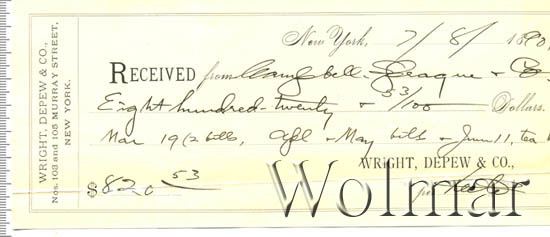 WRIGHT, DEPEW & CO.,
Nos. 103 and 105 MURRAY STREET,
NEW YORK.
New York, 7/8/ 1890,
RECEIVED from Campbell & Co
Eight hundred-twenty & 53/100 Dollars.
Mar 19 (2 bills, Apl & May bills & June 11, tea
WRIGHT, DEPEW & CO.,
$820 53
Wolmar